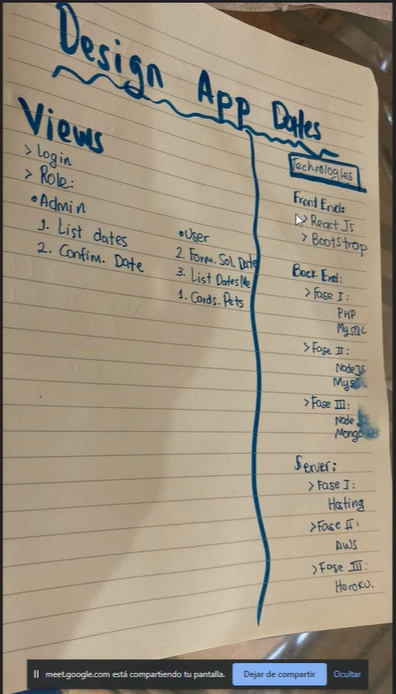 Design App Dates
Views
> Login
> Role:
• Admin
1. List dates
2. Confim. Date
• User
2. Form. Sol. Date
3. List Dates Me
1. Cards. Pets
Technologies
Front End:
> React Js
> BootStrop
Back End:
> Fase I:
PHP
MySQL
> Fase II:
NodeJs
> Fase III:
Node
Server:
> Fase I:
Hosting
> Fase II:
AWS
> Fase III:
Heroku.
meet.google.com está compartiendo tu pantalla.
Dejar de compartir
Ocultar